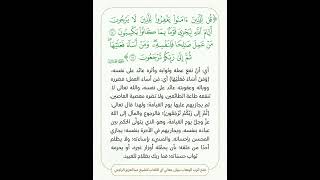 ﴿قُل لِّلَّذِينَ ءَامَنُوا۟ يَغْفِرُوا۟ لِلَّذِينَ لَا يَرْجُونَ
أَيَّامَ ٱللَّهِ لِيَجْزِىَ قَوْمًۢا بِمَا كَانُوا۟ يَكْسِبُونَ ۝
مَنْ عَمِلَ صَـٰلِحًا فَلِنَفْسِهِۦ ۖ وَمَنْ أَسَآءَ فَعَلَيْهَا ۖ
ثُمَّ إِلَىٰ رَبِّكُمْ تُرْجَعُونَ ۝﴾
أي: أنّ نفع عمله وثوابه وأثره عائد على نفسه،
﴿وَمَنْ أَسَاءَ فَعَلَيْهَا﴾ أي: مَن أساء العمل؛ فضرره
ووباله وعقوبته عائد على نفسه، والله تعالى لا
تنفعه طاعة الطائعين، ولا تضره معصية العاصين،
ثم يجازيهم عليها يوم القيامة؛ ولهذا قال تعالى:
﴿ثُمَّ إِلَى رَبِّكُمْ تُرْجَعُونَ﴾، فالرجوع والمآل إلى الله
عزّ وجلّ يوم القيامة، وهو الذي يتولّى الحُكم بين
عباده بنفسه، ويجازيهم في الآخرة بنفسه؛ يجازي
المحسن بإحسانه، والمسيء بإساءته، ولا يظلم
أحدًا من خلقه؛ بأن يحمّله أوزار غيره، أو يحرمه
ثواب حسناته؛ فما ربك بظلام للعبيد.